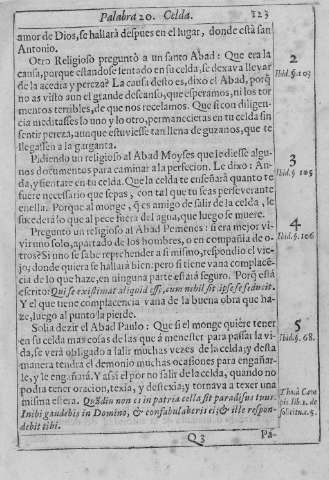 Palabra 20. Celda. 123
amor de Dios, se hallarà despues en el lugar, donde está san
Antonio.
Otro Religioso preguntò a un santo Abad: Que era la
causa, porque estandose sentado en su celda, se dexava llevar
de la acedia y pereza? La causa desto es, dixo el Abad, porq̃
no as visto aun el grande descanso, que esperamos, ni los tor
mentos terribles, de que nos recelamos. Que si con diligen-
cia meditasses lo uno y lo otro, permanecieras en tu celda sin
sentir pereza, aunque estuviesse tan llena de guzanos, que te
llegassen a la garganta.
2
Ibid. §. 103
Pidiendo un religioso al Abad Moyses que le diesse algu-
nos documentos para caminar a la perfecion. Le dixo: An-
da, y sientate en tu celda. Que la celda te enseñarà quanto te
fuere necessario que sepas, con tal que tu seas perseverante
en ella. Porque al monge, q̃ es amigo de salir de la celda, le
sucederà lo que al pece fuera del agua, que luego se muere.
3
Ibid. §. 105
Preguntò un religioso al Abad Pemenes: si era mejor vi-
vir uno solo, apartado de los hombres, o en compañia de o-
tros? Si uno se sabe reprehender a si mismo, respondio el vie-
jo, donde quiera se hallarà bien: pero si tiene vana complacẽ-
cia de lo que haze, en ninguna parte estarà seguro. Porq̃ està
escrito: Qui se existimat aliquid esse, cum nihil sit: ipse se seducit.
Y el que tiene complacencia vana de la buena obra que ha-
ze, luego al punto la pierde.
4
Ibid. §. 106
Solia dezir el Abad Paulo: Que si el monge quiere tener
en su celda mas cosas de las que à menester para passar la vi-
da, se verà obligado a salir muchas vezes de la celda; y desta
manera tendrà el demonio muchas ocasiones para engañar-
le, y le engañarà. Y assi el por no salir de la celda, quando no
podia tener oracion, texia, y destexia; y tornava a texer una
misma estera. Quãdiu non es in patria cella sit paradisus tuus.
Inibi gaudebis in Domino, & confabulaberis ei; & ille respon-
debit tibi.
5
Ibid. §. 68.
Q 3
Pa-